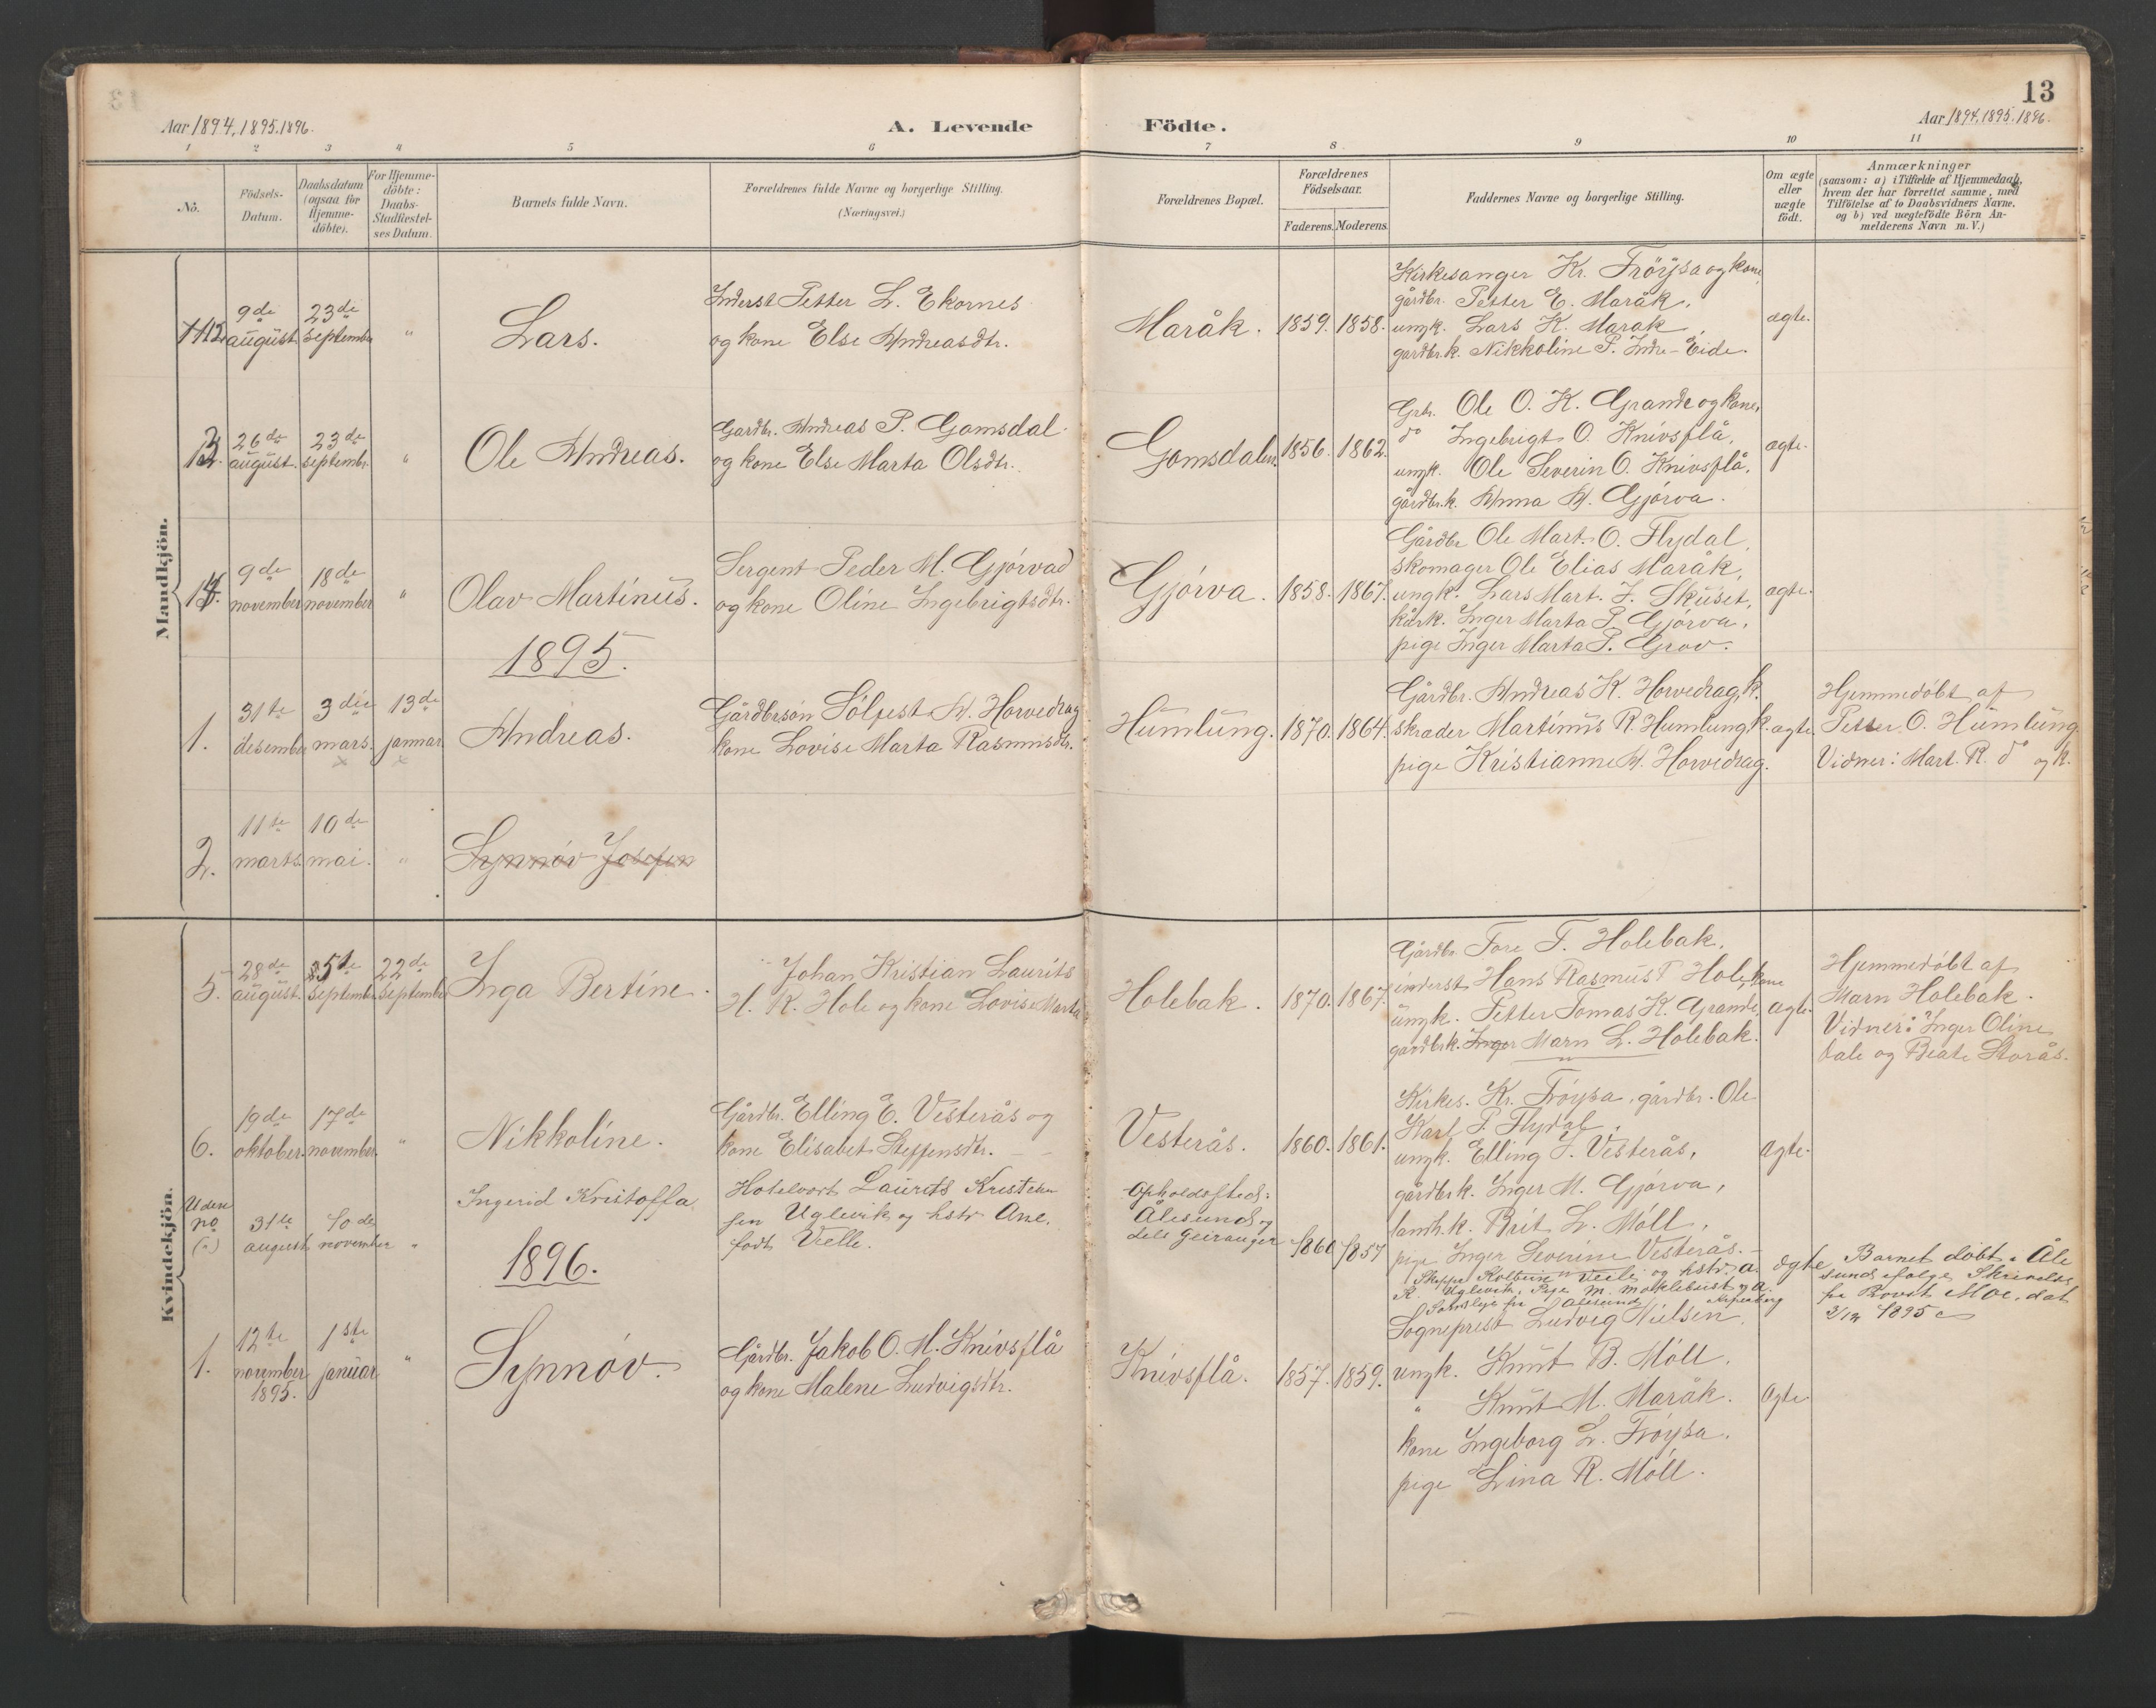 13
Aar 1894, 1895. 1896.
A. Levende Födte.
Aar 1894, 1895. 1896.
1 2 3 4 5 6 7 8 9 10 11
Nô.
Födsels-Datum.
Daabsdatum (ogsaa for Hjemme-döbte).
For Hjemme-döbte: Daabs-Stadfæstel-ses Datum.
Barnets fulde Navn.
Forældrenes fulde Navne og borgerlige Stilling.
(Næringsvei.)
Forældrenes Bopæl.
Forældrenes Födselsaar.
Faderens. Moderens.
Faddernes Navne og borgerlige Stilling.
Om ægte eller uægte födt.
Anmærkninger
(saasom: a) i Tilfælde af Hjemmedaab,
hvem der har forrettet samme, med
Tilföielse af to Daabsvidners Navne,
og b) ved uægtefödte Börn An-
melderens Navn m. V.)
Mandkjön.
12.
9de august
23de september
"
Lars.
Inderst Petter L. Ekornes
og kone Else Andreasdtr.
Maråk.
1859. 1858.
Kirkesanger Kr. Fröysa og kone,
gårdbr. Petter E. Maråk,
ungk. Lars K. Maråk,
gårdbr.k. Nikkoline P. Indre-Eide.
ægte.
13.
26de august.
23de septembr.
"
Ole Andreas.
Gardbr. Andreas P. Gomsdal
og kone Else Marta Olsdtr.
Gomsdalen.
1856. 1862.
Grbr. Ole O. K. Grande og kone,
do Ingebrigt O. Knivsflå,
ungk. Ole Severin O. Knivsflå,
gårdbr.k. Anna A. Gjörva.
ægte.
14.
9de november
18de november
"
Olav Martinus.
Sergent Peder M. Gjörvad
og kone Oline Ingebrigtsdtr.
Gjörva.
1858. 1867.
Gårdbr Ole Mart. O. Flydal,
skomager Ole Elias Maråk,
ungk. Lars Mart. J. Skuset,
kårk. Inger Marta P. Gjörva,
pige Inger Marta P. Grov.
ægte.
1895.
1.
31te desember
3die mars.
13de januar.
Andreas.
Gårdbrsön Sölfest A. Horvedrag
kone Lovise Marta Rasmusdtr.
Humlung.
1870. 1864.
Gårdbr. Andreas K. Horvedrag, k.
skræder Martinus R. Humlung, k.
pige Kristianne A. Horvedrag.
ægte
Hjemmedöbt af
Petter O. Humlung.
Vidner: Mart. R. do og k.
2.
11te marts.
10de mai.
"
Synnöv Josefen
Kvindekjön.
5.
28de august.
5te september
22de september
Inga Bertine.
Johan Kristian Laurits
H. R. Hole og kone Lovise Marta
Holebak.
1870. 1867.
Gårdbr. Tore T. Holebak,
inderst Hans Rasmus T Hole, kone
ungk. Petter Tomas K. Grande,
gardbrk. Inger Marn L. Holebak.
ægte.
Hjemmedöbt af
Marn Holebak.
Vidner: Inger Oline
Dale og Beate Storås.
6.
19de oktober.
17de november.
"
Nikkoline.
Gårdbr. Elling E. Vesterås og
kone Elisabet Steffensdtr.
Vesterås.
1860. 1861.
Kirkes. Kr. Fröysa, gårdbr. Ole
Karl P. Flydal,
ungk. Elling J. Vesterås,
gårdbrk. Inger M. Gjörva,
landh.k. Brit L. Möll,
pige Inger Severine Vesterås.
ægte.
Uden no
31te august
10de november
"
Ingerid Kristoffa
Hotelvært Laurits Kristen
sen Uglevik og hstr Ane,
född Vielle.
Opholdssted:
Ålesund og
dels Geiranger
1860 1857
K. Uglevik, Pige M. Moklebust og A.
ægte
Barnet döbt i Åle
sund ifölge Skrivelse
fra Provst Moe, dat
2/12 1895
1896.
1.
12te november 1895.
1ste januar
"
Synnöv.
Gårdbr. Jakob O. M. Knivsflå
og kone Malene Ludvigsdtr.
Knivsflå.
1857. 1859.
Sogneprest Ludvig Nielsen,
ungk. Knut B. Möll,
" Knut M. Maråk.
kone Ingeborg L. Fröysa.
pige Lina R. Möll.
ægte